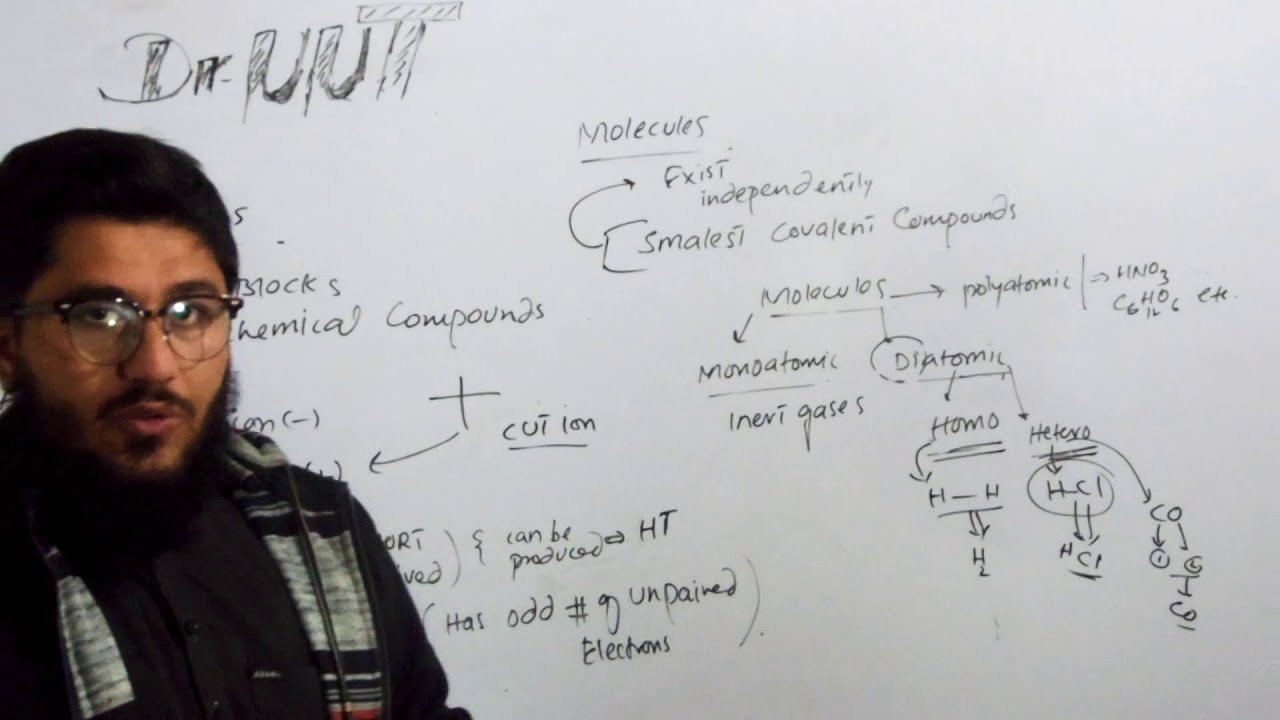 Dr. UUT
Molecules
Exist
independently
Smalest covalent Compounds
s
Blocks
hemical Compounds
ion(-)
(+)
CUT ion
ORT
ived
can be
produced ⇒ HT
(Has odd # of unpaired
Electrons)
Molecules → polyatomic ⇒ HNO3
C6H12O6 etc.
Monoatomic
Inert gases
Diatomic
Homo
Hetero
H-H
H2
H-Cl
HCl
CO
CO